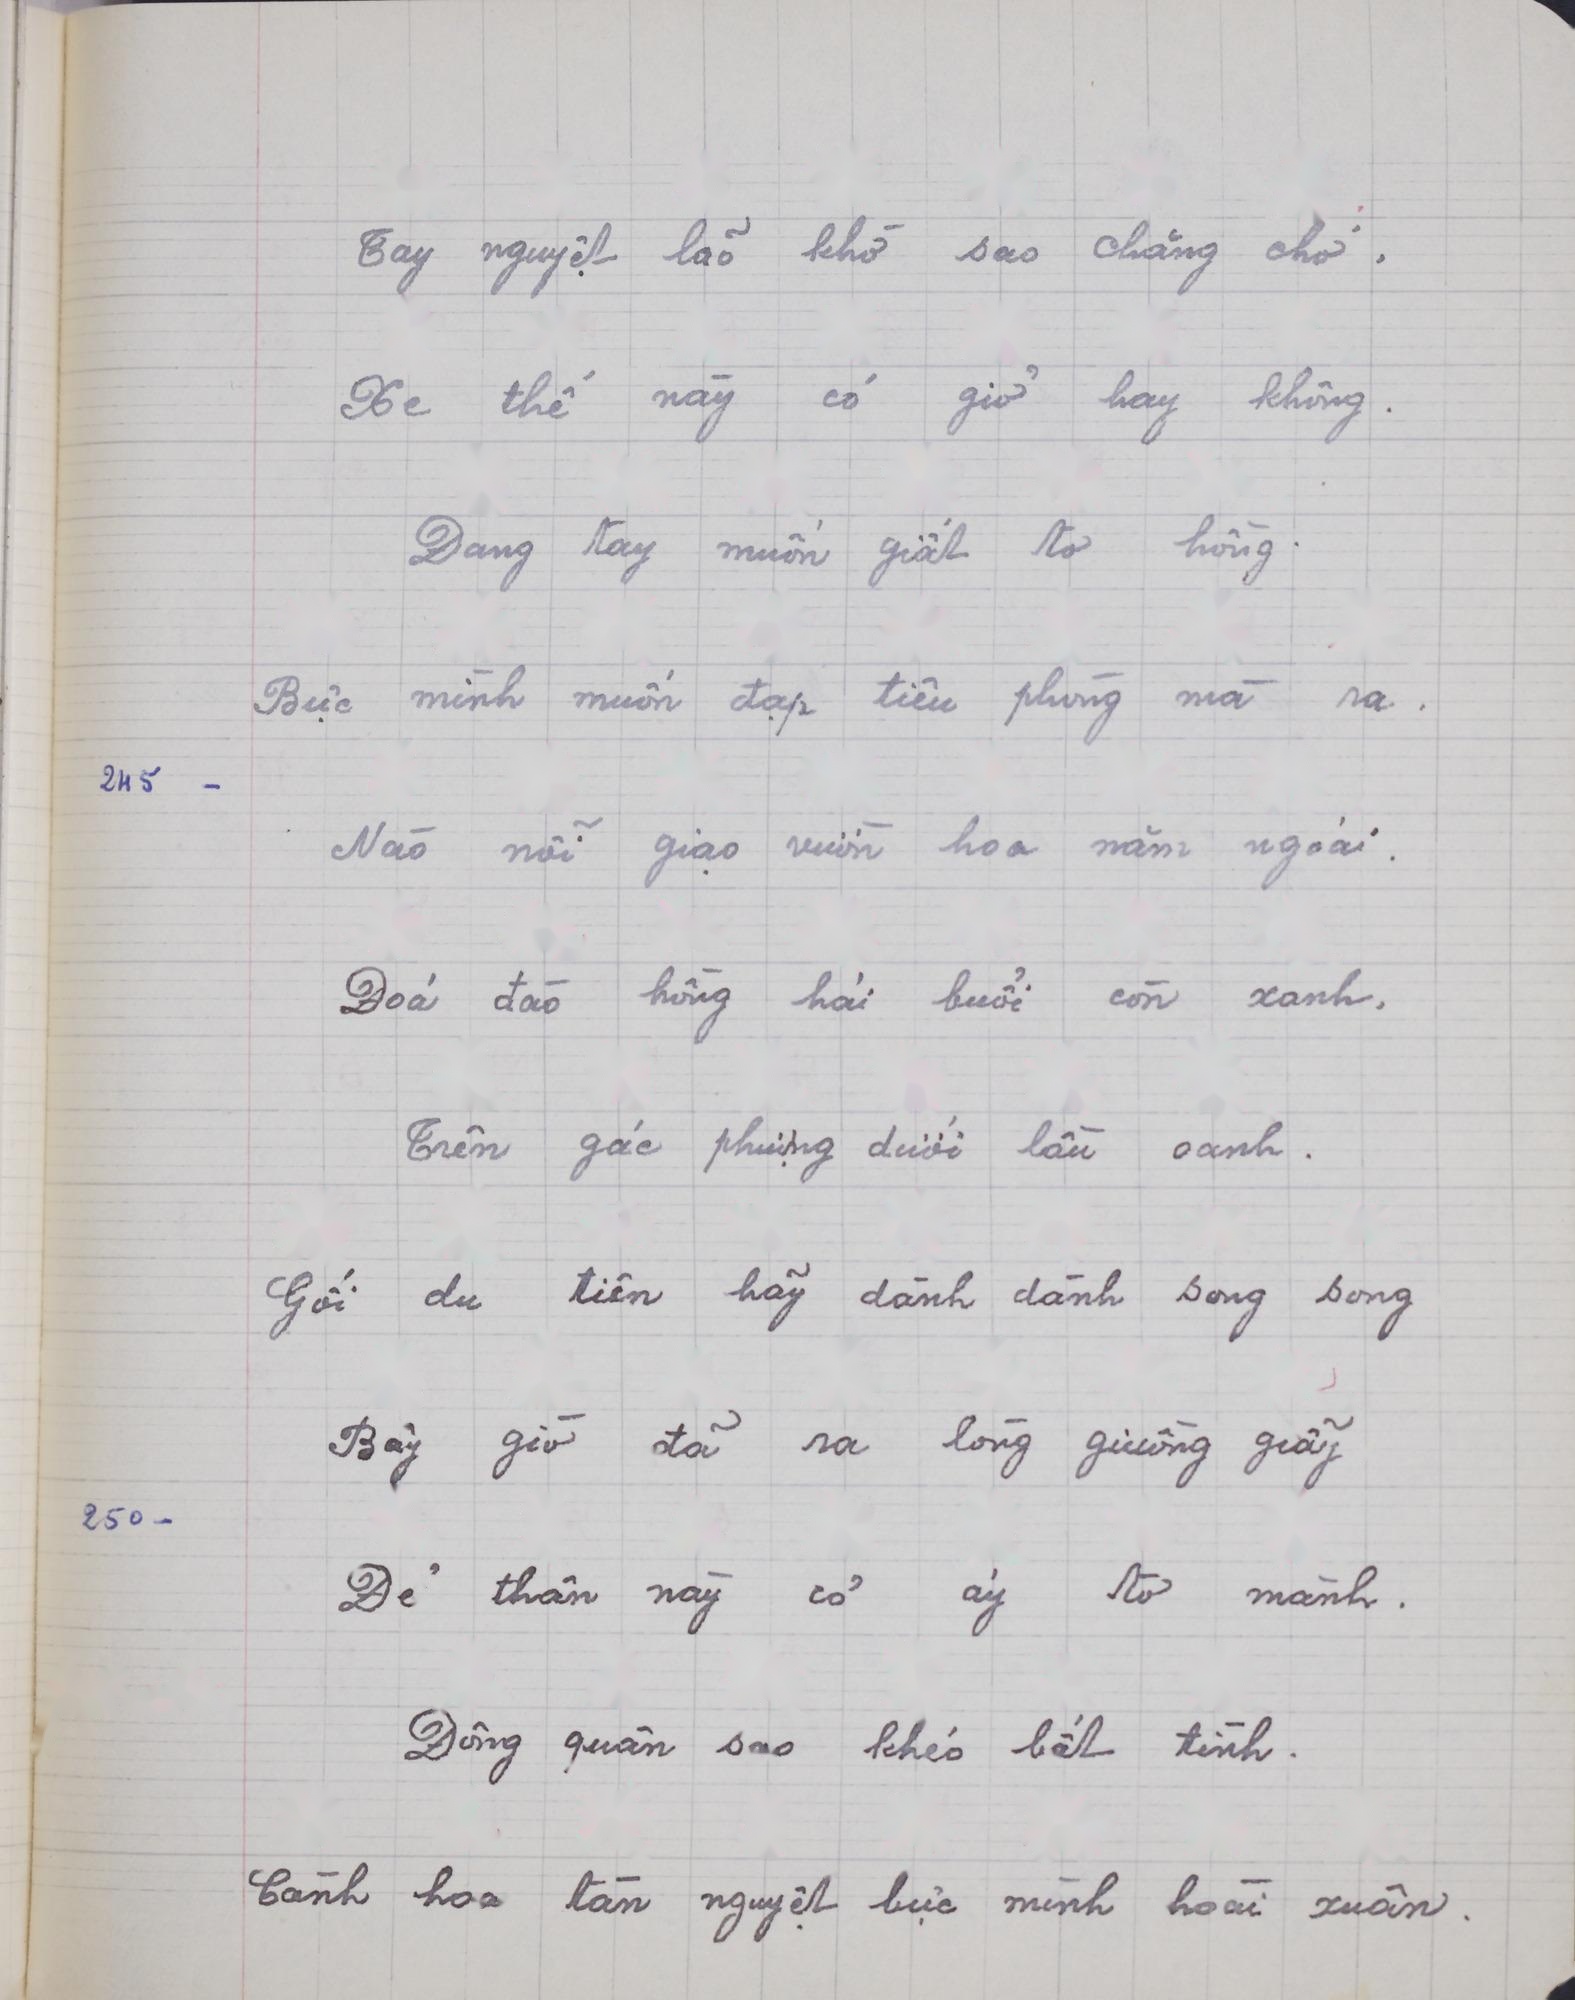 Tay nguyệt lão khờ sao chẳng chớ.
Xe thế này có giở hay không.
Dang tay muốn giất tơ hồng.
Bực mình muốn đạp tiêu phòng mà ra.
245 -
Nào nỗi giạo vườn hoa năm ngoái.
Đoá đào hồng hái buổi còn xanh.
Trên gác phượng dưới lầu oanh.
Gối du tiên hãy dành dành song song
Bây giờ đã ra lòng giuồng giẫy
250 -
Để thân này cỏ áy tơ mành.
Đông quân sao khéo bất tình.
Cành hoa tàn nguyệt bực mình hoài xuân.